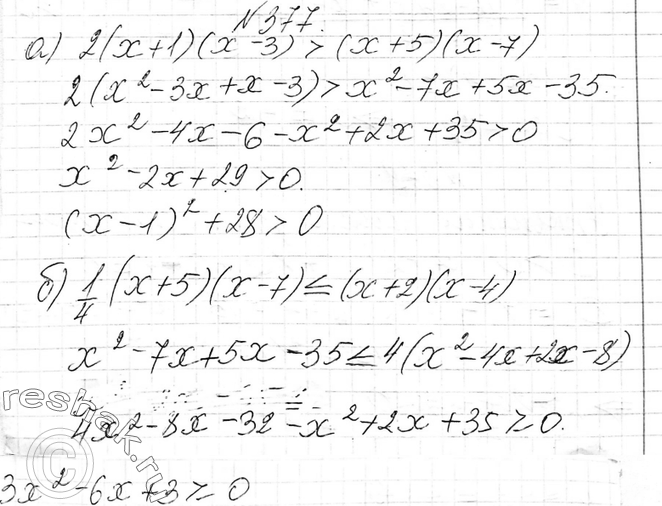 №377.
а) 2(x+1)(x-3)>(x+5)(x-7)
2(x²-3x+x-3)>x²-7x+5x-35.
2x²-4x-6-x²+2x+35>0
x²-2x+29>0.
(x-1)²+28>0
б) 1/4(x+5)(x-7)≤(x+2)(x-4)
x²-7x+5x-35≤4(x²-4x+2x-8)
4x²-8x-32-x²+2x+35≥0.
3x²-6x+3≥0
reshak.ru